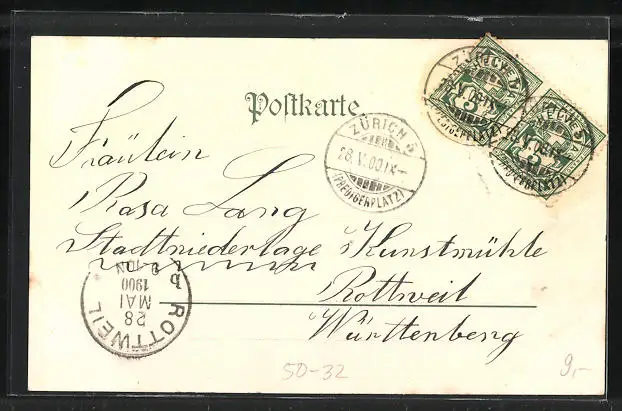 Postkarte
HELVETIA
5
HELVETIA
5
ZÜRICH 5
28.V.00.IX-
(PREDIGERPLATZ)
Fräulein
Rosa Lang
Stadtniederlage Kunstmühle
Rottweil
Württenberg
ROTTWEIL
28
MAI
1900
50-32
9,-